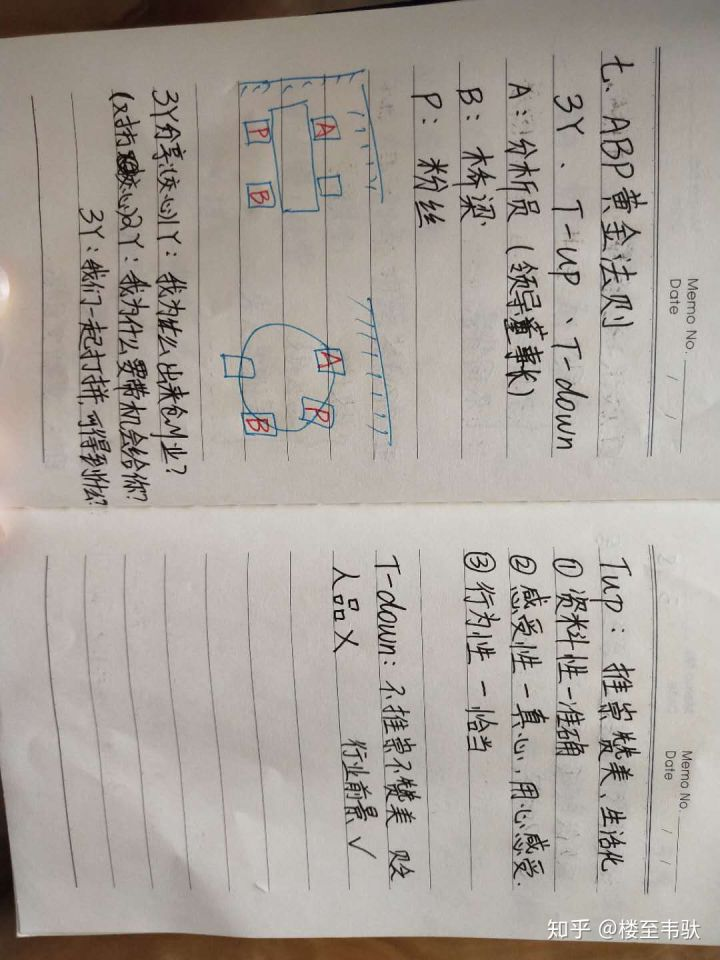 Memo No.
Date / /
七、ABP黄金法则
3Y、T-up、T-down
A:分析员(领导董事长)
B:桥梁
P:粉丝
A
P
B
A
P
B
3Y分享(交心)1Y:我为什么出来创业?
(对打交心)2Y:我为什么要带机会给你?
3Y:我们一起打拼,可得到什么?
Memo No.
Date / /
Tup:推崇赞美、生活化
①资料性-准确
②感受性-真心,用心感受.
③行为性-恰当
T-down:不推崇不赞美 贬
人品X 行业前景√
知乎 @楼至韦驮